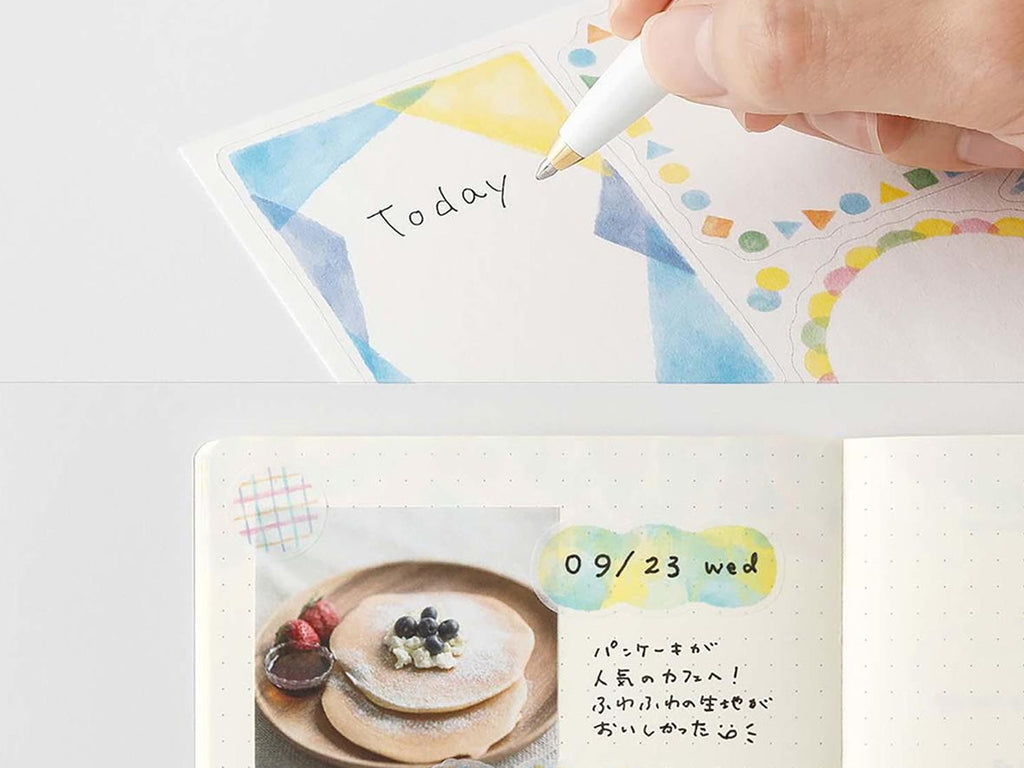 Today
09/23 wed
パンケーキが
人気のカフェへ!
ふわふわの生地が
おいしかった